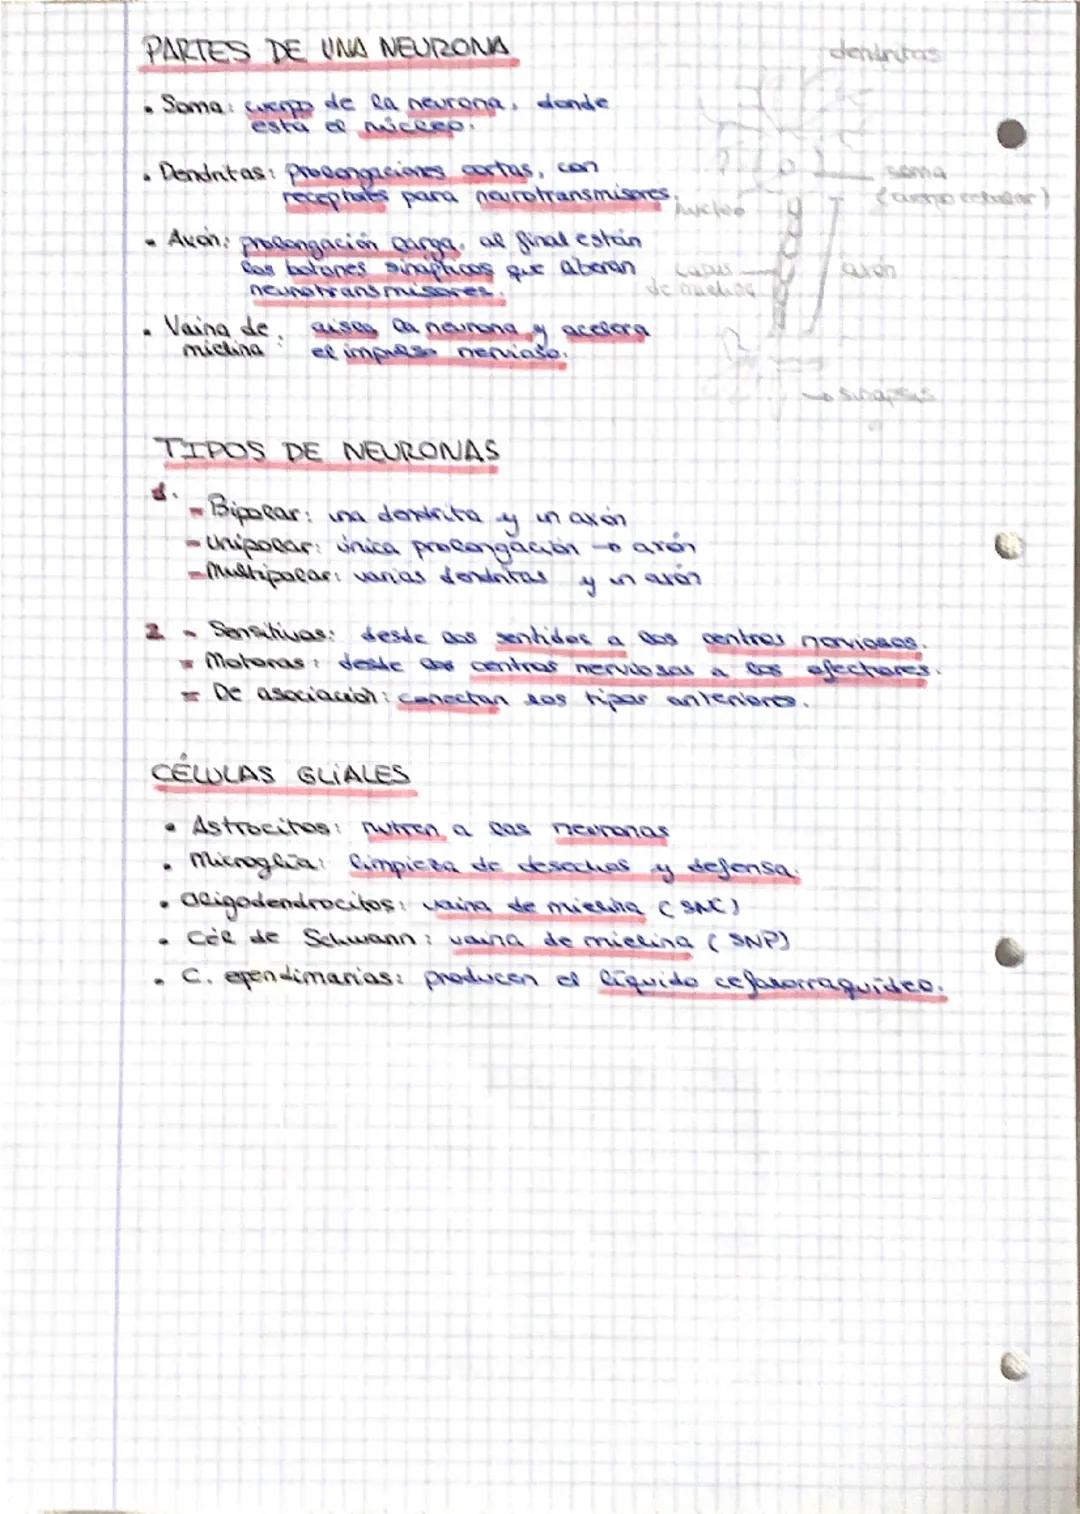 PARTES DE UNA NEURONA
dendritas
• Soma: cuerpo de la neurona, donde
está el núcleo.
• Dendritas: Prolongaciones cortas, con
receptores para neurotransmisores.
soma
(cuerpo celular)
núcleo
• Axón: prolongación larga, al final están
los botones sinápticos que liberan
neurotransmisores.
axón
de mielina
• Vaina de mielina: aisla la neurona y acelera
el impulso nervioso.
→ sinapsis
TIPOS DE NEURONAS
1.
- Bipolar: una dendrita y un axón
- Unipolar: única prolongación → axón
- Multipolar: varias dendritas y un axón
2 - Sensitivas: desde los sentidos a los centros nerviosos.
- Motoras: desde los centros nerviosos a los efectores.
- De asociación: conectan los tipos anteriores.
CÉLULAS GLIALES
• Astrocitos: nutren a las neuronas
• Microglía: limpieza de desechos y defensa.
• Oligodendrocitos: vaina de mielina (SNC)
• Cél de Schwann: vaina de mielina (SNP)
• C. ependimarias: producen el líquido cefalorraquídeo.